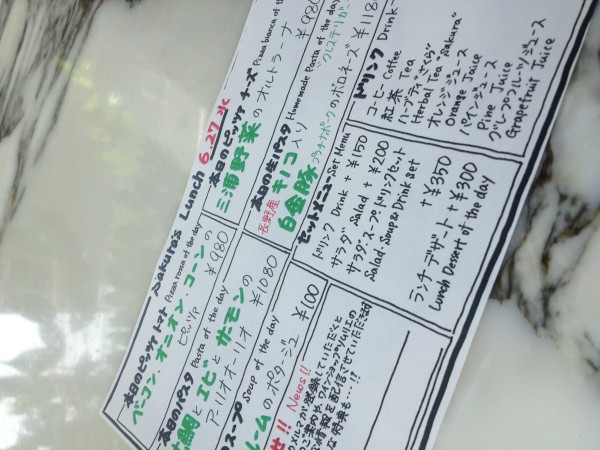 Sakura's Lunch 6.27 水
本日のピッツァ トマト Pizza rossa of the day
ベーコン・オニオン・コーンの
ピッツァ ¥980
本日のピッツァ チーズ Pizza bianca of the day
三浦野菜のオルトラーナ
¥980
本日のパスタ Pasta of the day
鯛とエビとサーモンの
アーリオオーリオ ¥1080
本日の生パスタ Homemade Pasta of the day
長野産キノコ入り
白金豚 プラチナポークのボロネーズ ¥118
スープ Soup of the day
ームのポタージュ ¥100
セットメニュー Set Menu
ドリンク Drink + ¥150
サラダ Salad + ¥200
サラダ・スープ・ドリンクセット
Salad・Soup & Drink set
+ ¥350
ランチデザート + ¥300
Lunch Dessert of the day
ドリンク Drink
コーヒー Coffee
紅茶 Tea
ハーブティ "さくら"
Herbal Tea "Sakura"
オレンジジュース
Orange Juice
パインジュース
Pine Juice
グレープフルーツジュース
Grapefruit Juice
せ!! News!!
メルマガ登録していただくと